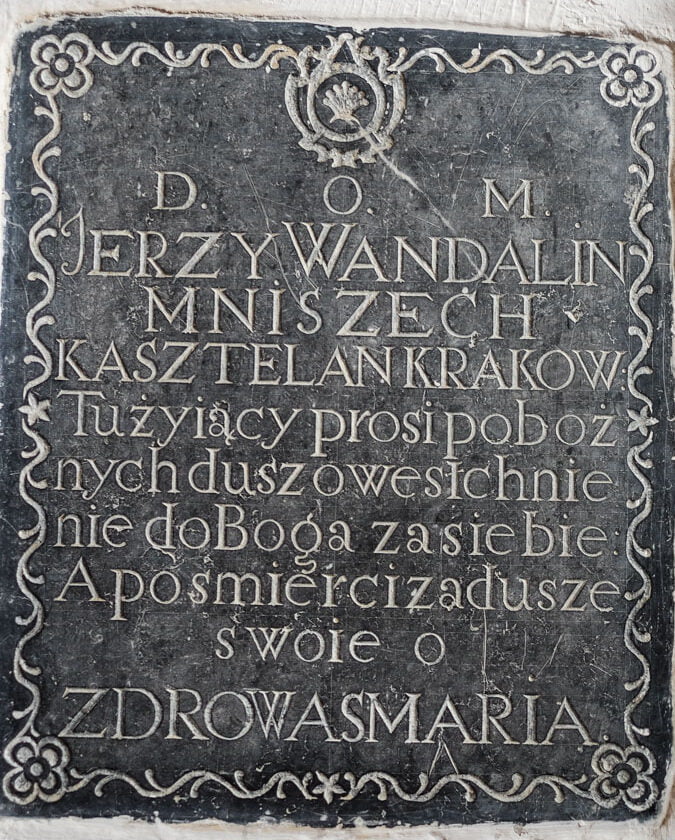 D. O. M.
JERZY WANDALIN
MNISZECH
KASZTELAN KRAKOW:
Tu żyiący prosi poboż
nych dusz o wes tchnie
nie do Boga za siebie:
A po smierci za dusze
swoie o
ZDROWAS MARIA.